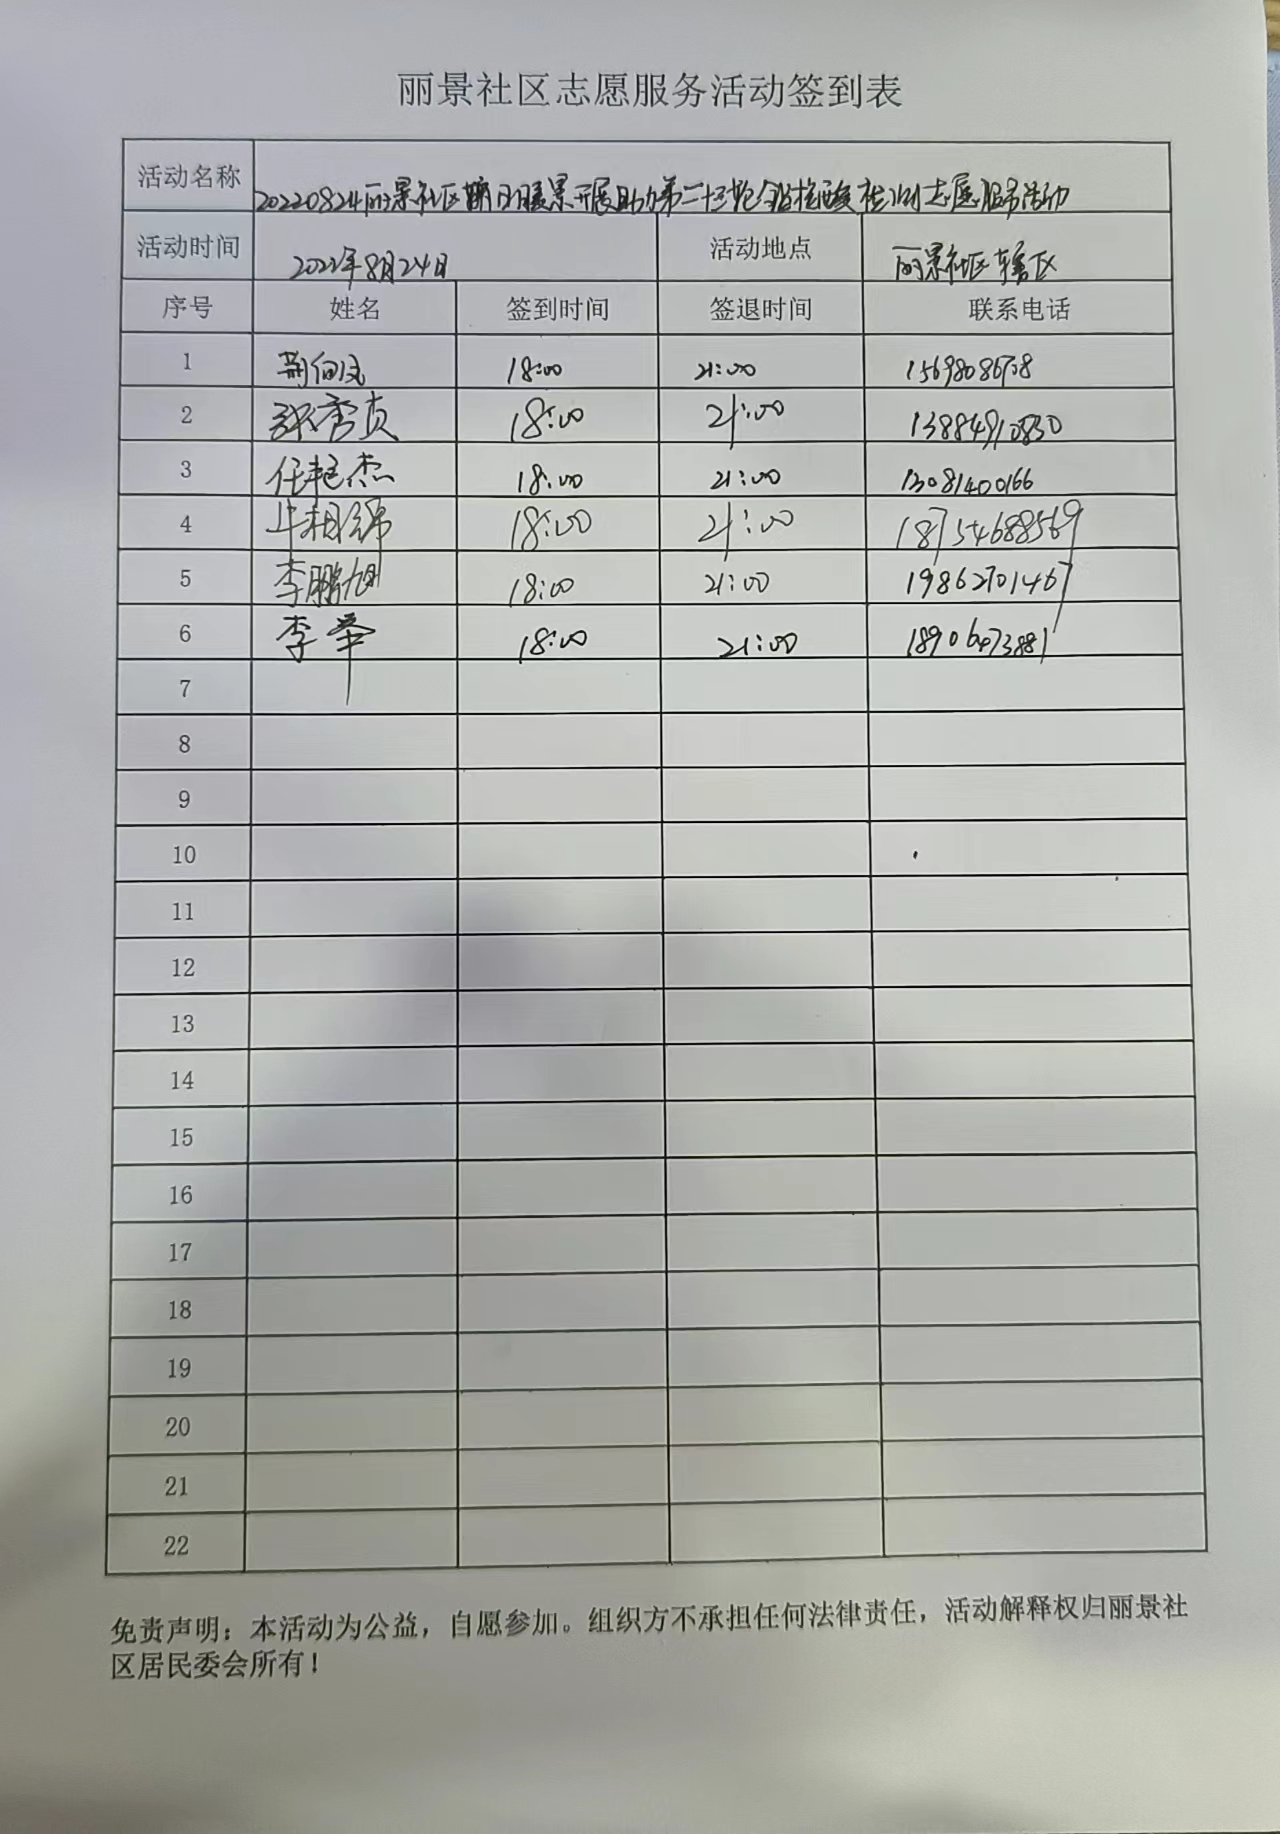 丽景社区志愿服务活动签到表
活动名称 20220824丽景社区 开展助力第二十三轮全员核酸检测志愿服务活动
活动时间 2022年8月24日 活动地点 丽景社区辖区
序号 姓名 签到时间 签退时间 联系电话
1 18:00 21:00
2 张秀贞 18:00 21:00 13884910830
3 任艳杰 18:00 21:00 13081400166
4 牛相锦 18:00 21:00 18754688569
5 李鹏旭 18:00 21:00 19862701467
6 李举 18:00 21:00 18906473881
7
8
9
10
11
12
13
14
15
16
17
18
19
20
21
22
免责声明：本活动为公益，自愿参加。组织方不承担任何法律责任，活动解释权归丽景社
区居民委会所有！